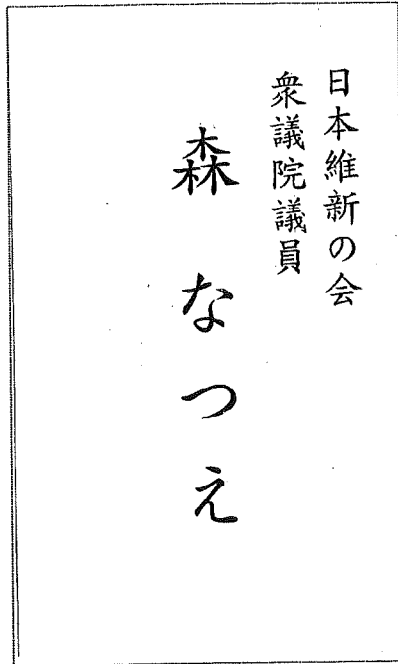 日本維新の会
衆議院議員
森なつえ